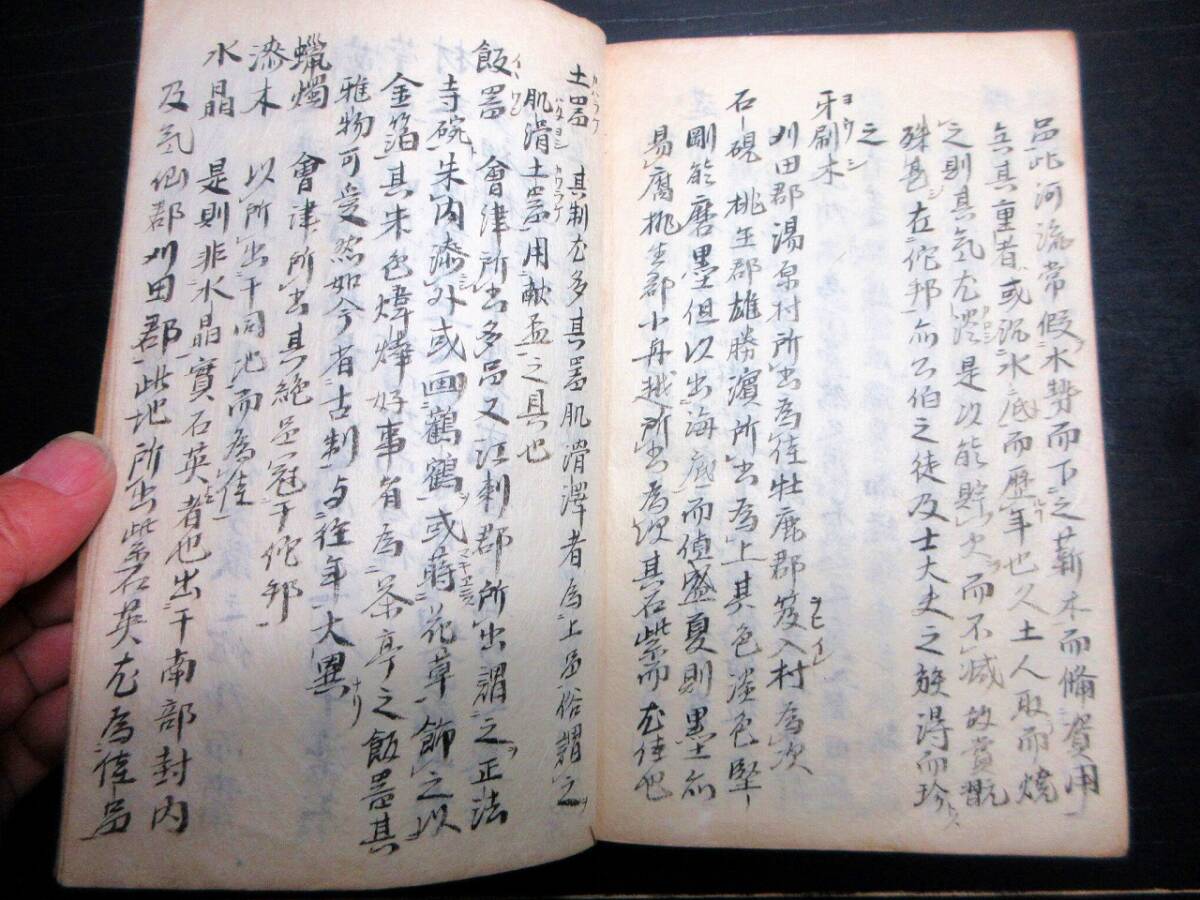 品此河流常假水勢而下之薪木而備資用
矣其重者或沉水底而歴年也久土人取而燒
之則其氣尤淡是以能貯火而不減故賞翫
殊甚在佗邦亦云伯之徒及士大夫之族得而珍
之
牙刷木
刈田郡湯原村所出為佳牡鹿郡笈入村為次
石硯 桃生郡雄勝濵所出為上其色淡色堅
剛能磨墨但以出海底而値盛夏則墨亦
易腐桃生郡小舟越所出為次其石紫而尤佳也
土器 其制尤多其器肌滑澤者為上品俗謂之
肌滑土器用献盃之具也
飯器 會津所出多品又江刺郡所出謂之正法
寺碗朱内漆外或画鶴或蒔花草飾之以
金箔其朱色煒燁好事者為茶亭之飯器其
雅物可愛然如今者古制与往年大異
蠟燭 會津所出其絶品冠于佗邦
漆木 以所出于同地而為佳
水晶 是則非水晶實石英者也出于南部封内
及氣仙郡刈田郡此地所出紫石英尤為佳品